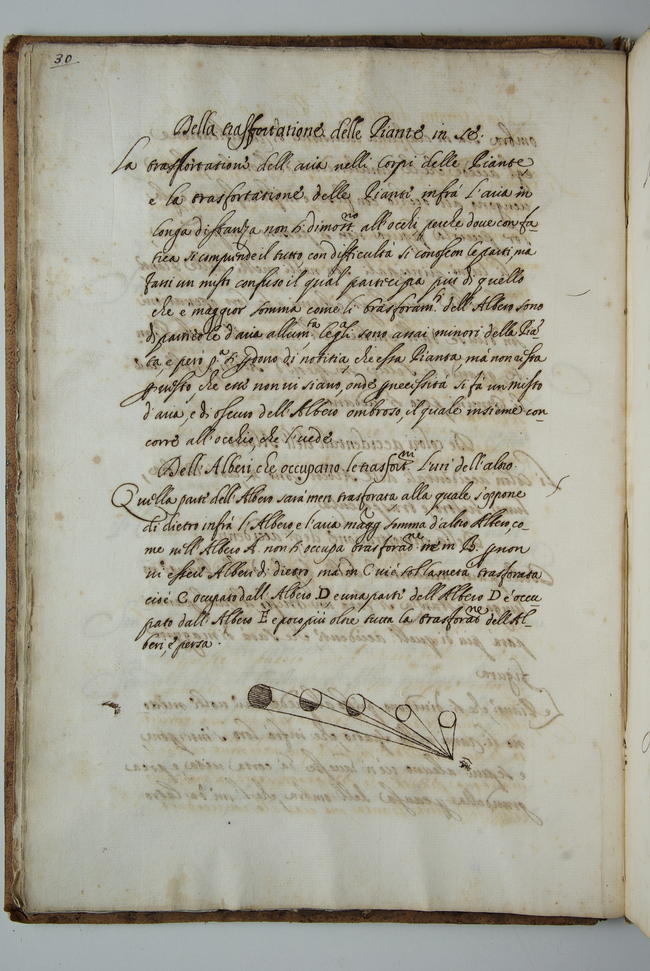 30.
Della trasfortatione delle Piante in se.
La trasfortatione dell'aria nelli Corpi delle Piante,
e la trasfortatione delle Piante infrà l'aria in
longa distanza non si dimo all'occhi, perche dove con fa-
tica si comprende il tutto, con difficulta si conoscon le parti, ma
fassi un misto confuso il qual partecipa più di quello
che è maggior somma come li trasforam.ti dell'Albero sono
di particole d'aria allum.ta le q.li sono assai minori della Pia-
ta, e però si perdono di notitia, che essa Pianta, ma non resta
questo, che esse non vi siano, onde necessità si fà un misto
d'aria, e di oscuro dell'Albero ombroso, il quale insieme con-
corre all'occhio, che l'vede
Dell'Alberi, che occupano le trasfort.ni l'uni dell'altro.
Quella parte dell'Albero sarà men trasforata, alla quale s'oppone
di dietro infrà l'Albero, e l'aria magg somma d'altro Albero, co-
me nell'Albero A. non si occupa trasforat.ne ne in B. p non
vi essere Alberi di dietro, ma in C vi è sol la metà trasforata
cioè C occupato dall'Albero D, e una parte dell'Albero D è occu-
pato dall'Albero E e poco più oltre tutta la trasforat.ne dell'Al-
beri, è persa.